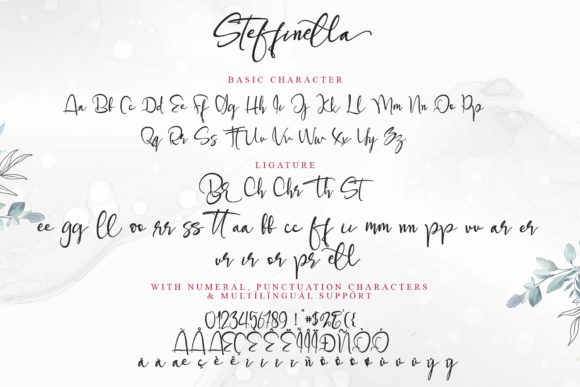 Steffinella
BASIC CHARACTER
Aa Bb Cc Dd Ee Ff Gg Hh Ii Jj Kk Ll Mm Nn Oo Pp
Qq Rr Ss Tt Uu Vv Ww Xx Yy Zz
LIGATURE
Br Ch Chr Th St
ee gg ll oo rr ss tt aa bb cc ff ii mm nn pp uu ar er
ur ir or pr ell
WITH NUMERAL, PUNCTUATION CHARACTERS
& MULTILINGUAL SUPPORT
0123456789